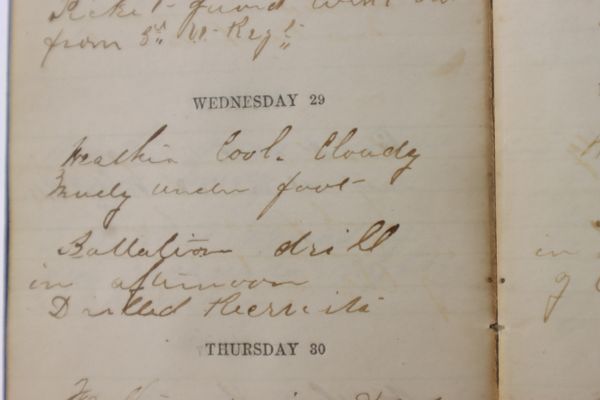 Picket guard went
from 3rd U. Regt
WEDNESDAY 29
Weather Cool. Cloudy
Mudy under foot
Battalion drill
in afternoon
Drilled Recruits
THURSDAY 30
in
g